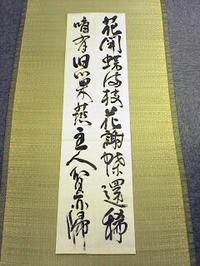 花開蝶満枝花謝蝶還稀
唯有旧巣燕主人貧亦帰